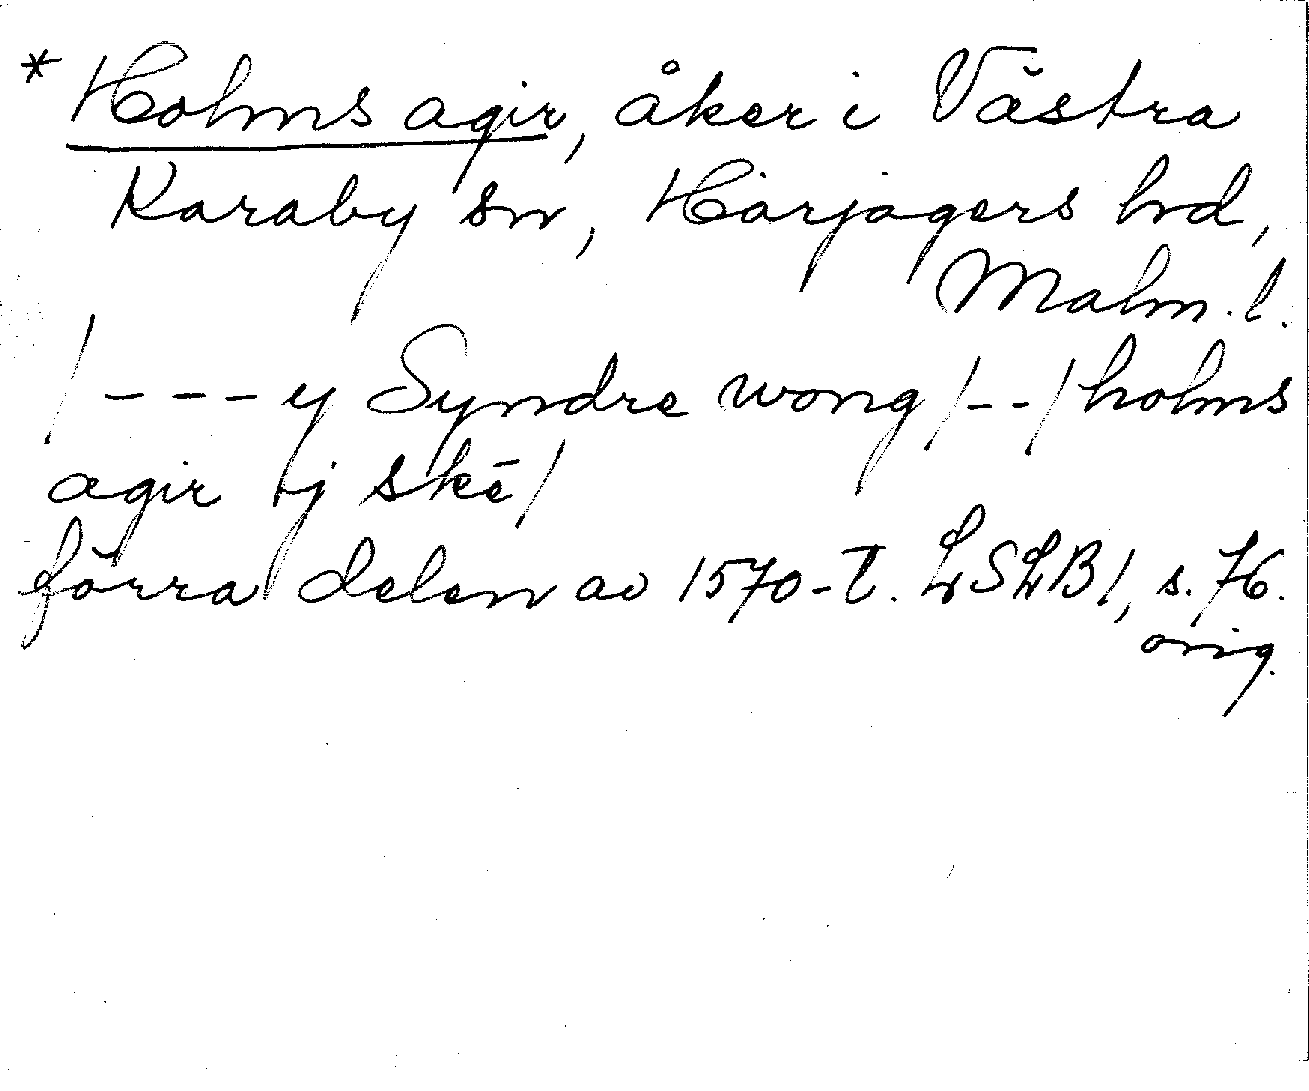 * Holms agir, åker i Västra
Karaby sn, Härjagers hrd,
Malm. l.
/ - - - y Syndre wong /- -/ holms
agir ij skē/
förra delen av 1570-t. LSLB 1, s. 76.
orig.